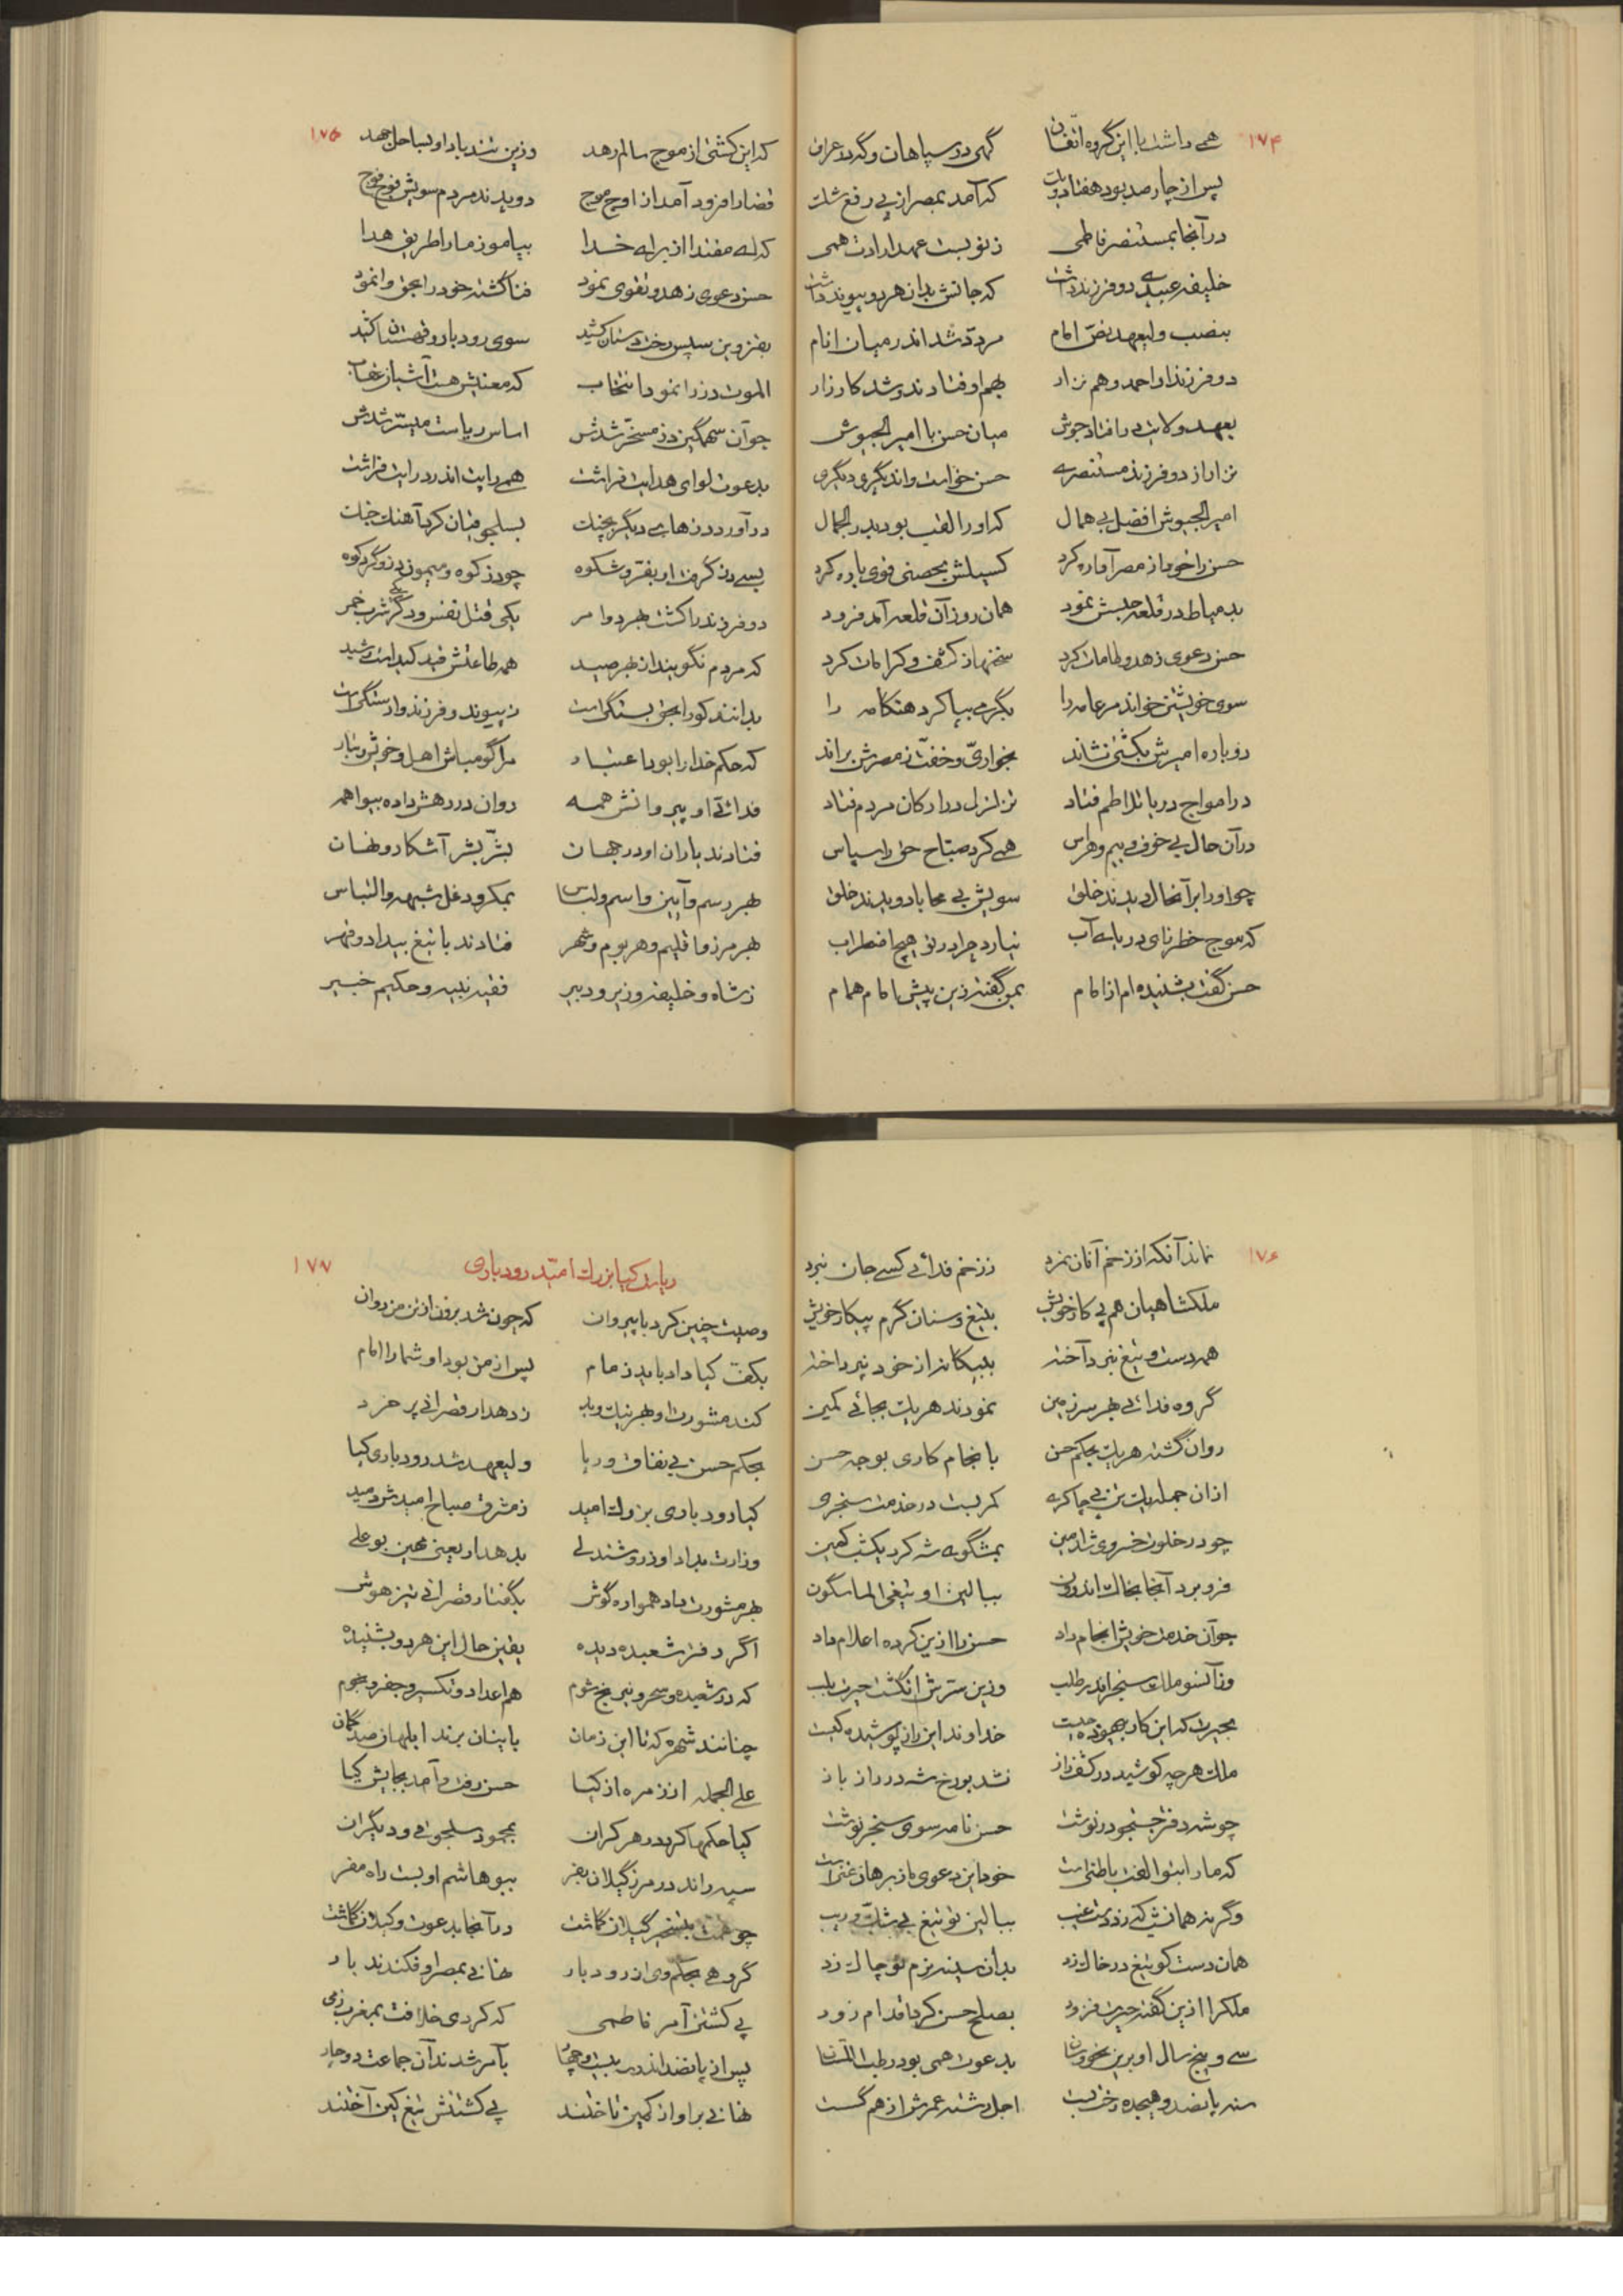 ۱۷۴
همی داشت با این گروه اتفاق گهی در سپاهان و گه در عراق
پس از چارصد بود هفتاد و یک که آمد بمصر از پی رفع شک
در آنجا بمستنصر فاطمی ز نو بست عهد ارادت همی
خلیفه عبیدی دو فرزند داشت که جانش بدان هر دو پیوند داشت
بنصب ولیعهد نص امام مردد شد اندر میان انام
دو فرزند او احمد و هم نزار بهم اوفتادند و شد کارزار
بعهد ولایت در افتاد جوش میان حسن با امیر الجیوش
نزار از دو فرزند مستنصری حسن خواست واندیگری دیگری
امیر الجیوش افضل بی همال که او را لقب بود بدر الجمال
حسن را خود از مصر آواره کرد گسیلش بحصنی قوی باره کرد
بدمیاط در قلعه حبسش نمود همان روز آن قلعه آمد فرود
حسن دعوی زهد و طامات کرد سخنها ز کشف و کرامات کرد
سوی خویشتن خواند مر عامه را بگرمی بپا کرد هنگامه را
دوباره امیرش بکشتی نشاند بخواری و خفت ز مصرش براند
در امواج دریا تلاطم فتاد تزلزل در ارکان مردم فتاد
در آن حال بی خوف و بیم و هراس همی کرد صباح حق را سپاس
چو او را بر آنحال دیدند خلق سویش بی محابا دویدند خلق
که موج خطرنای دریای آب نیارد چرا در تو هیچ اضطراب
حسن گفت بشنیده ام از امام بمن گفته زین پیش امام همام
۱۷۵
که این کشتی از موج سالم رهد وزین تندباد او بساحل جهد
قضا را فرود آمد از اوج موج دویدند مردم سویش فوج فوج
که ای مقتدا از برای خدا بیاموز ما را طریق هدا
حسن دعوی زهد و تقوی نمود فنا گشته خود را بحق وانمود
بقزوین سپس رخت دستان کشید سوی رودبار و قهستان کشید
الموت دز را نمود انتخاب که معنیش هست آشیان عقاب
چو آن سهمگین دز مسخر شدش اساس ریاست میسر شدش
بدعوت لوای هدایت فراشت همی رایت اندر درایت فراشت
در آورد دزهای دیگر بچنگ بسلجوقیان کرد آهنگ جنگ
بسی دز گرفت او بفر و شکوه چو دز کوه و میمون دز و گرد کوه
دو فرزند را کشت بهر دو امر یکی قتل نفس و دگر شرب خمر
که مردم نگویند از بهر صید همه طاعتش قید کید است و شید
بدانند کو را بحق بستگی است ز پیوند و فرزند وارستگی است
که حکم خدا را بود اعتبار مرا گو مباش اهل و خویش و تبار
فدائی او پیروانش همه روان در رهش داده بی واهمه
فتادند یاران او در جهان بشر بشر آشکار و نهان
بهر رسم و آیین و اسم و لباس بمکر و دغل شبهه و التباس
بهر مرز و اقلیم و هر بوم و شهر فتادند با تیغ بیداد و قهر
ز شاه و خلیفه وزیر و دبیر فقیه نبیه و حکیم خبیر
۱۷۶
نماند آنکه از زخم آنان نمرد ز زخم فدائی کسی جان نبرد
ملکشاهیان هم پی کار خویش بتیغ و سنان گرم پیکار خویش
همه دست و تیغ نبرد آخته ببیگانه از خود نپرداخته
گروه فدائی بهر سرزمین نمودند هر یک بجائی کمین
روان گشته هر یک بحکم حسن بانجام کاری بوجه حسن
از آن جمله یک تن پی چاکری کمر بست در خدمت سنجری
چو در خلوت خسروی شد امین بمشگوی شه کرد یکشب کمین
فرو برد آنجا بخاک اندرون ببالین او تیغی الماسگون
چو آن خدمت خویش انجام داد حسن را ازین کرده اعلام داد
وز آنسو ملک سنجر اندر طلب وزین سترش انگشت حیرت بلب
بحیرت که این کار بیهوده چیست خداوند این راز پوشیده کیست
ملک هر چه کوشید در کشف راز نشد بر رخ شه در راز باز
چو شه دفتر جستجو در نوشت حسن نامه سوی سنجر نوشت
که ما را بتو الفت باطنی است خود این دعوی از برهان غنی است
وگرنه همانشب که زد دست غیب ببالین تو تیغ بی شک و ریب
همان دست کو تیغ در خاک زد بدان سینه نرم تو چاک زد
ملکرا ازین گفته حیرت فزود بصلح حسن کرد اقدام زود
سی و پنج سال او برین نحو و سان بدعوت همی بود رطب اللسان
سنه پانصد و هیجده رخت بست اجل رشته عمرش از هم گسست
۱۷۷
در بیان کیا بزرگ امید رودباری
وصیت چنین کرد با پیروان که چون شد برون از تن من روان
بکف کیا داد باید زمام پس از من بود او شما را امام
کند مشورت او بهر نیک و بد ز دهدار قصرانی پر خرد
بحکم حسن بی نفاق و ریا ولیعهد شد رودباری کیا
کیا رودباری بزرگ امید ز مشرق صباح امیدش دمید
وزارت بداد او ز روشندلی بدهدار یعنی مهین بوعلی
بهر مشورت داد همواره گوش بگفتار قصرانی تیز هوش
اگر دفتر شعبده دیده یقین حال این هر دو بشنیده
که در شعبده و سحر و نیرنج شوم هم اعداد و تکسیر و جفر و نجوم
چنانند شهره که تا این زمان باینان برند ابلهان صد گمان
علی الجمله از زمره ازکیا حسن رفت و آمد بجایش کیا
کیا حکمها کرد در هر کران بمحمود سلجوقی و دیگران
سپه راند در مرز گیلان بفر ببوهاشم او بست راه مفر
چو همت بتسخیر گیلان گماشت در آنجا بدعوت وکیلان گماشت
گروهی بحکم وی از رودبار نهانی بمصر اوفکندند بار
پی کشتن آمر فاطمی که کردی خلافت بمغرب زمی
پس از پانصد اندر بیست و چهار بآمر شدند آن جماعت دوچار
نهانی بر او از کمین تاختند پی کشتنش تیغ کین آختند